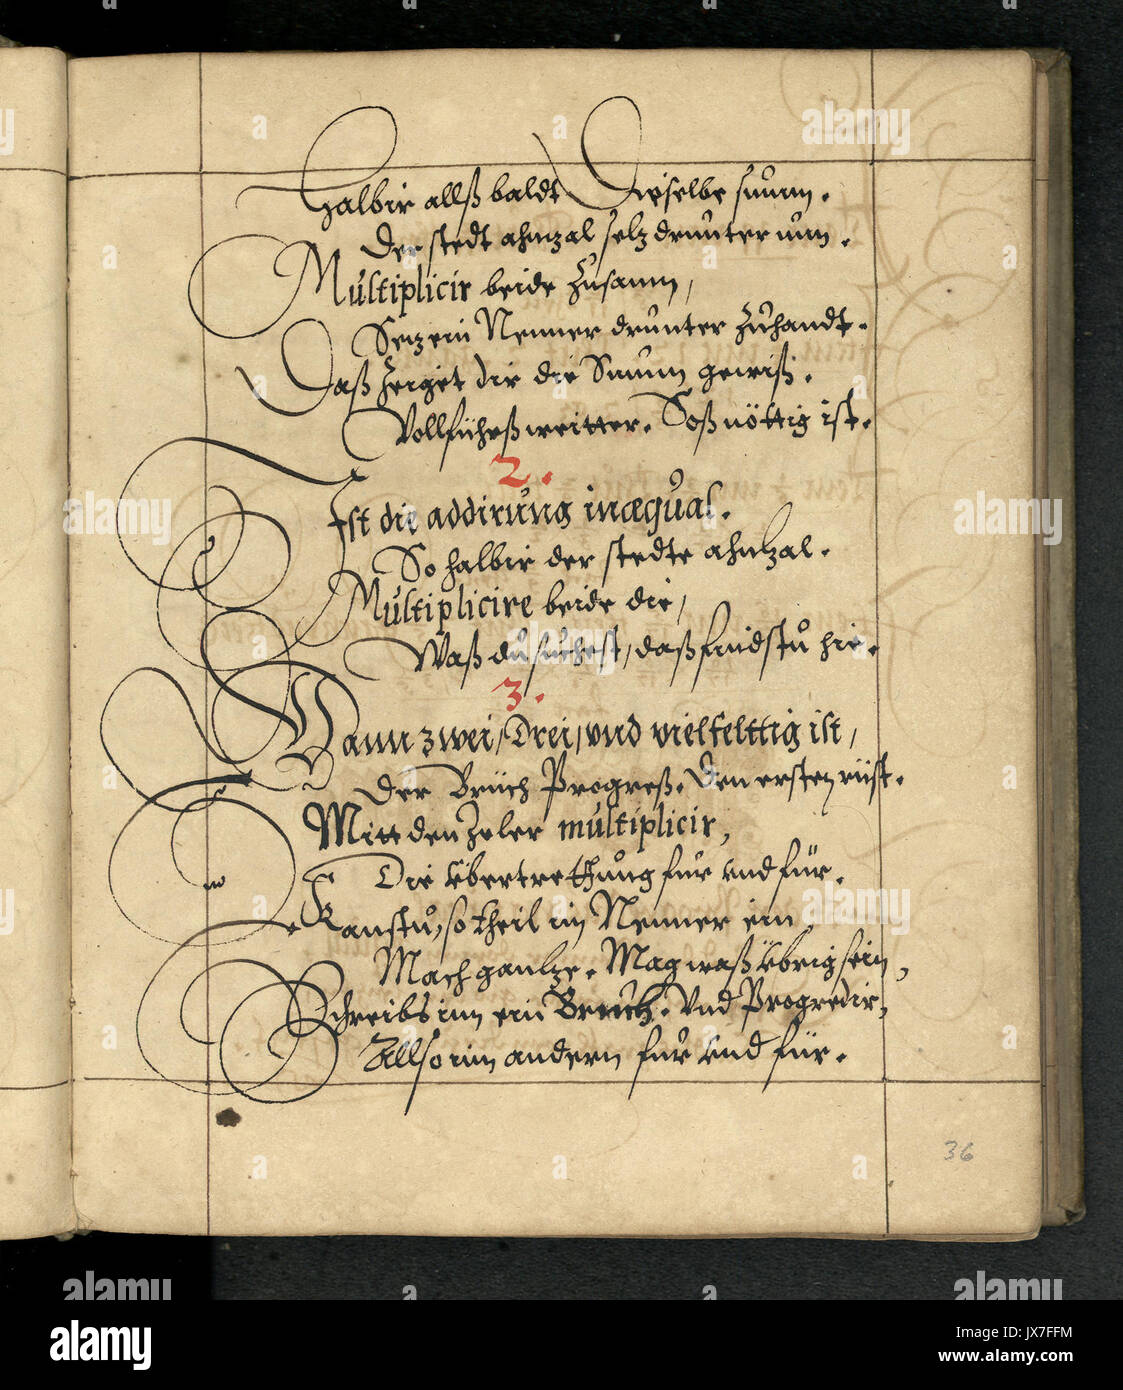 Halbir allß baldt Dieselbe summ.
Der stedt ahnzal selz drunter num.
Multiplicir beide zusamm,
Sez ein Nenner drunter zuhandt.
Daß zeiget dir die Summ gewiß.
Vollführß weitter. Soß nöttig ist.
2.
Ist die addirung inæqual.
So halbir der stedte ahnlzal.
Multiplicire beide die,
Waß du suchest, daß findstu hie.
3.
Wann zwei, Drei, vnd vielfelttig ist,
Der Brüch Progreß. Den ersten rüst.
Mitt den Zeler multiplicir,
Die Übertreffung für vnd für.
Kanstu, so theil im Nenner ein
Mach gantze. Mag waß übrig sein,
Schreibs inn ein Bruch. Vnd Progredir,
Allso im andern für vnd für.
36
alamy
JX7FFM
www.alamy.com